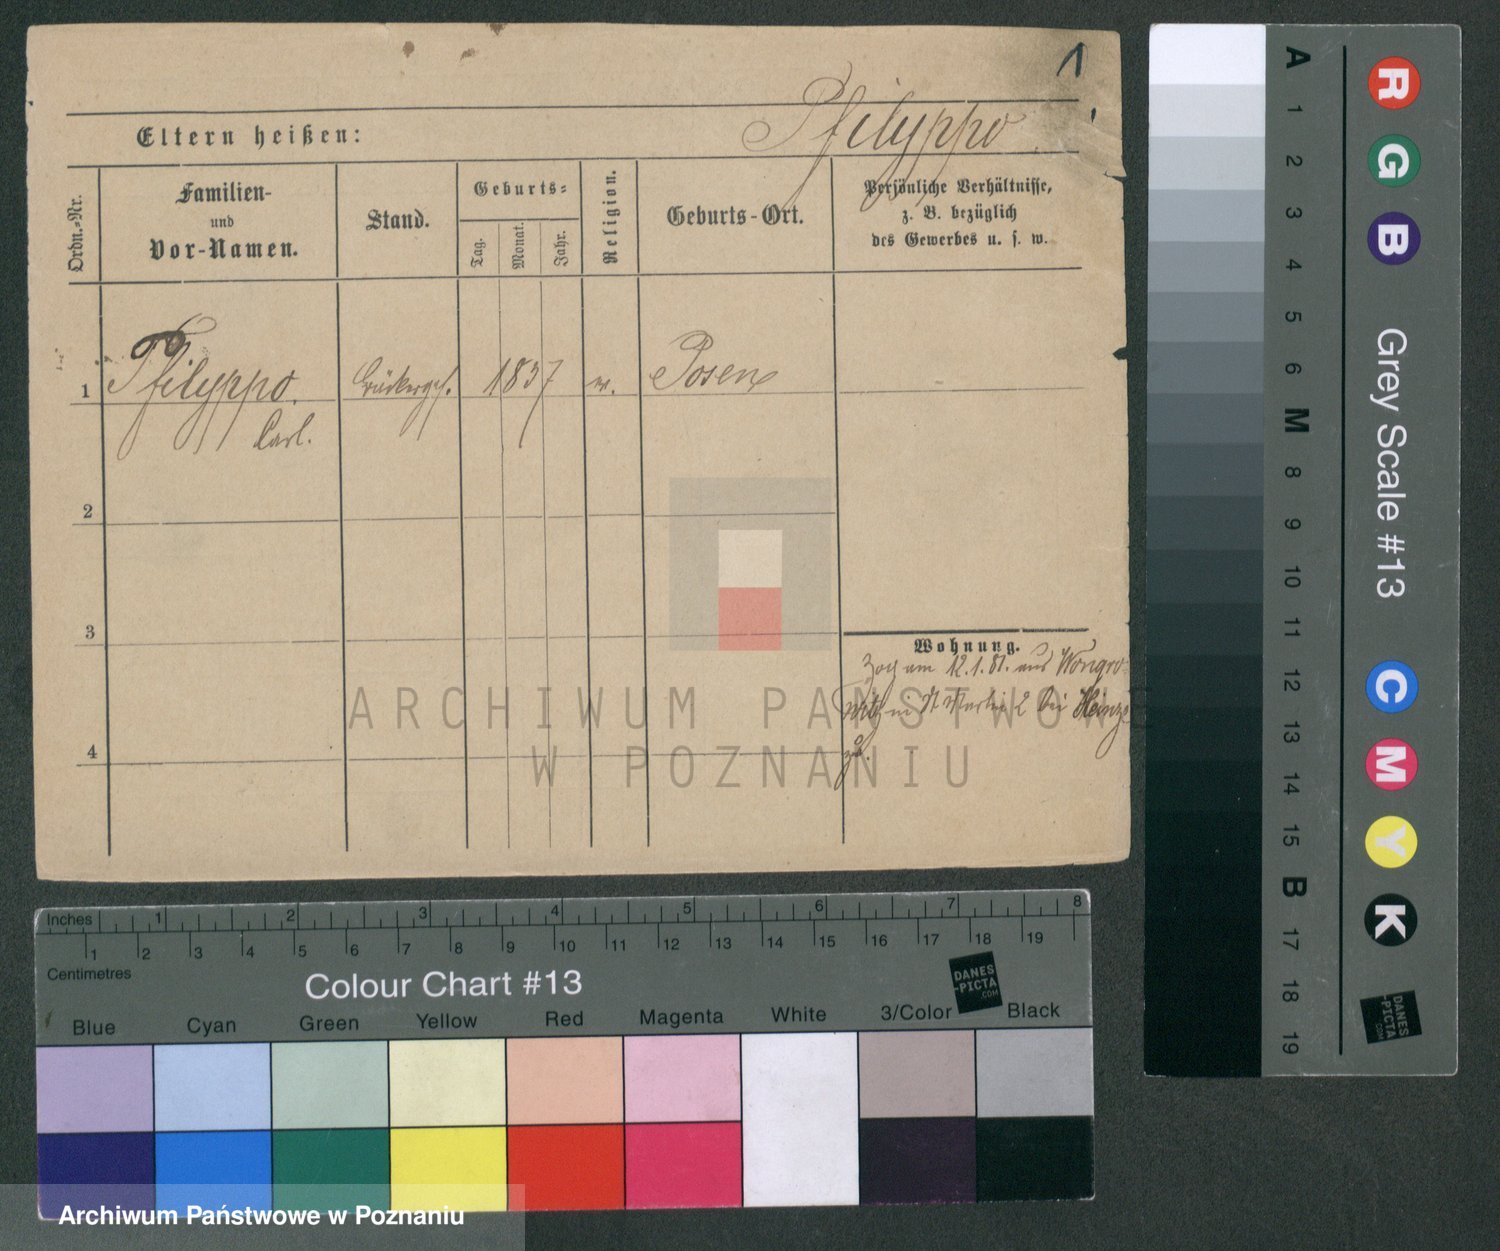 1
Pfilyppo
Eltern heißen:
Ordn.-Nr.
Familien-
und
Vor-Namen.
Stand.
Geburts-
Tag.
Monat.
Jahr.
Religion.
Geburts-Ort.
Persönliche Verhältnisse,
z. B. bezüglich
des Gewerbes u. s. w.
1
Pfilyppo.
Carl.
1837
Posen
2
3
4
Wohnung.
Zog am 12.1.81. aus Wongro-
witz in St Martin 2 bei Heinze
ARCHIWUM PAŃSTWOWE
W POZNANIU
Inches 1 2 3 4 5 6 7 8
1 2 3 4 5 6 7 8 9 10 11 12 13 14 15 16 17 18 19
Centimetres
Colour Chart #13
DANES
-PICTA
.COM
Blue Cyan Green Yellow Red Magenta White 3/Color Black
A 1 2 3 4 5 6 M 8 9 10 11 12 13 14 15 B 17 18 19
R G B
Grey Scale #13
C M Y K
DANES
-PICTA
.COM
Archiwum Państwowe w Poznaniu